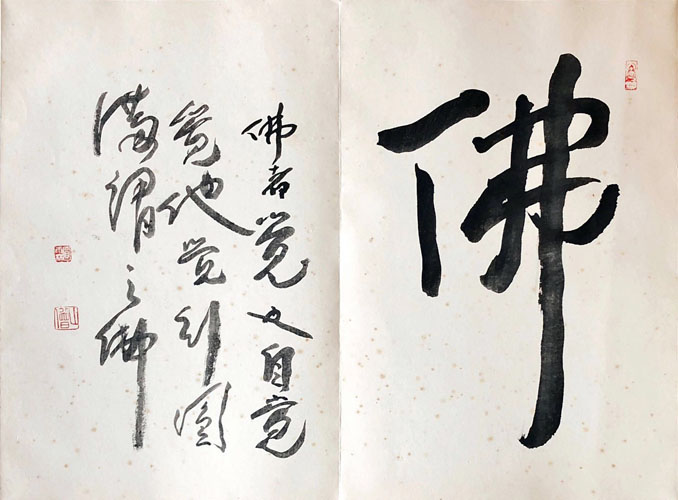 佛
佛者觉也自觉
觉他觉行圆
满谓之佛